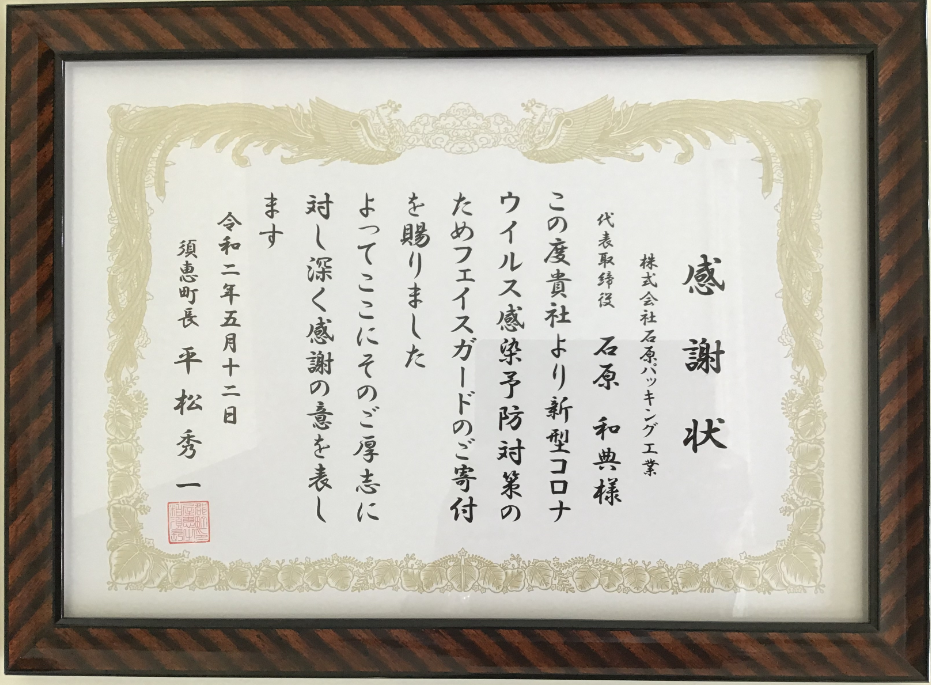 感謝状
株式会社石原パッキング工業
代表取締役 石原 和典様
この度貴社より新型コロナ
ウイルス感染予防対策の
ためフェイスガードのご寄付
を賜りました
よってここにそのご厚志に
対し深く感謝の意を表し
ます
令和二年五月十二日
須恵町長 平松秀一